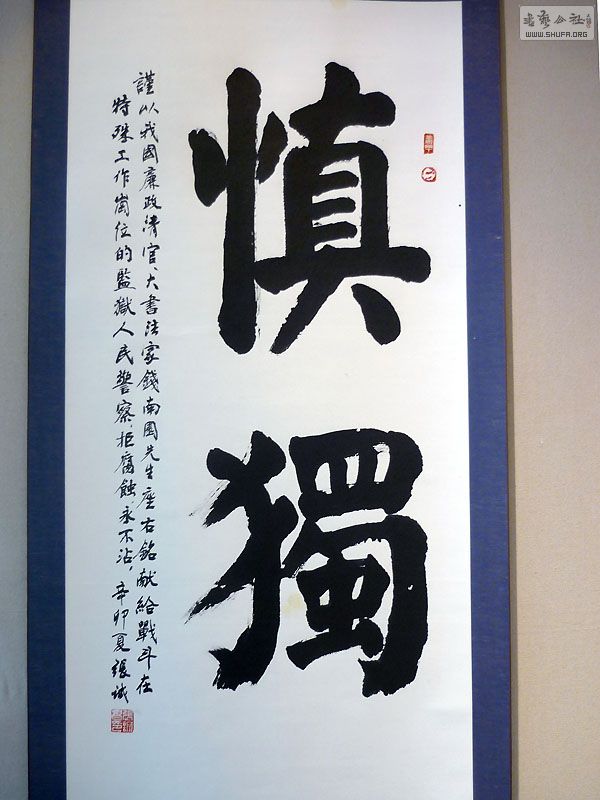 慎獨
謹以我國廉政清官大書法家錢南園先生座右銘献給戰斗在
特殊工作崗位的監獄人民警察拒腐蝕永不沾辛卯夏張誠
書藝公社
WWW.SHUFA.ORG